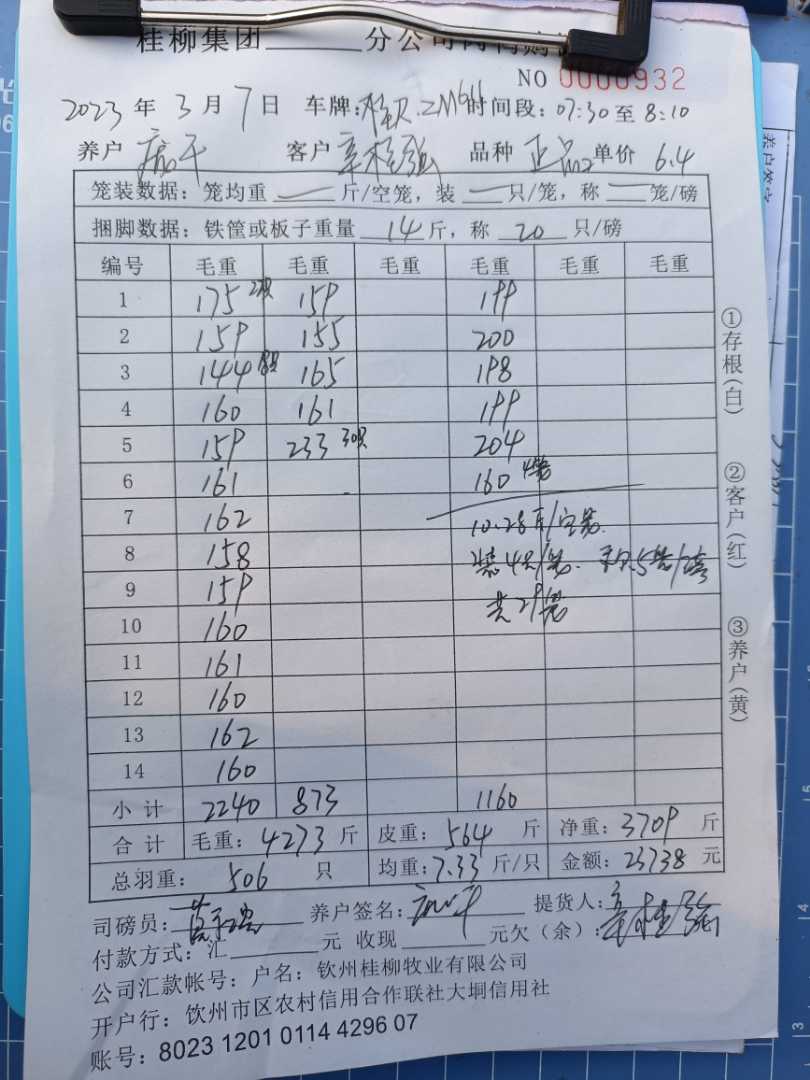 桂柳集团 分公司
NO 0000932
2023 年 3 月 7 日 车牌: 时间段: 07:30 至 8:10
养户 客户 辛桂强 品种 正品 单价 6.4
笼装数据: 笼均重 — 斤/空笼, 装 — 只/笼, 称 — 笼/磅
捆脚数据: 铁筐或板子重量 14 斤, 称 20 只/磅
编号 毛重 毛重 毛重 毛重 毛重 毛重
1 175 159 199
2 159 155 200
3 144 165 198
4 160 161 199
5 159 233 30只 204
6 161 160 4笼
7 162 10.28斤/空笼
8 158 装4只/笼. 称5笼/磅
9 159 共29笼
10 160
11 161
12 160
13 162
14 160
小计 2240 873 1160
合计 毛重: 4273 斤 皮重: 564 斤 净重: 3709 斤
总羽重: 506 只 均重: 7.33 斤/只 金额: 23738 元
①存根(白)
②客户(红)
③养户(黄)
司磅员: 养户签名: 提货人: 辛桂强
付款方式: 汇 元 收现 元欠(余):
公司汇款帐号: 户名: 钦州桂柳牧业有限公司
开户行: 钦州市区农村信用合作联社大垌信用社
账号: 8023 1201 0114 4296 07